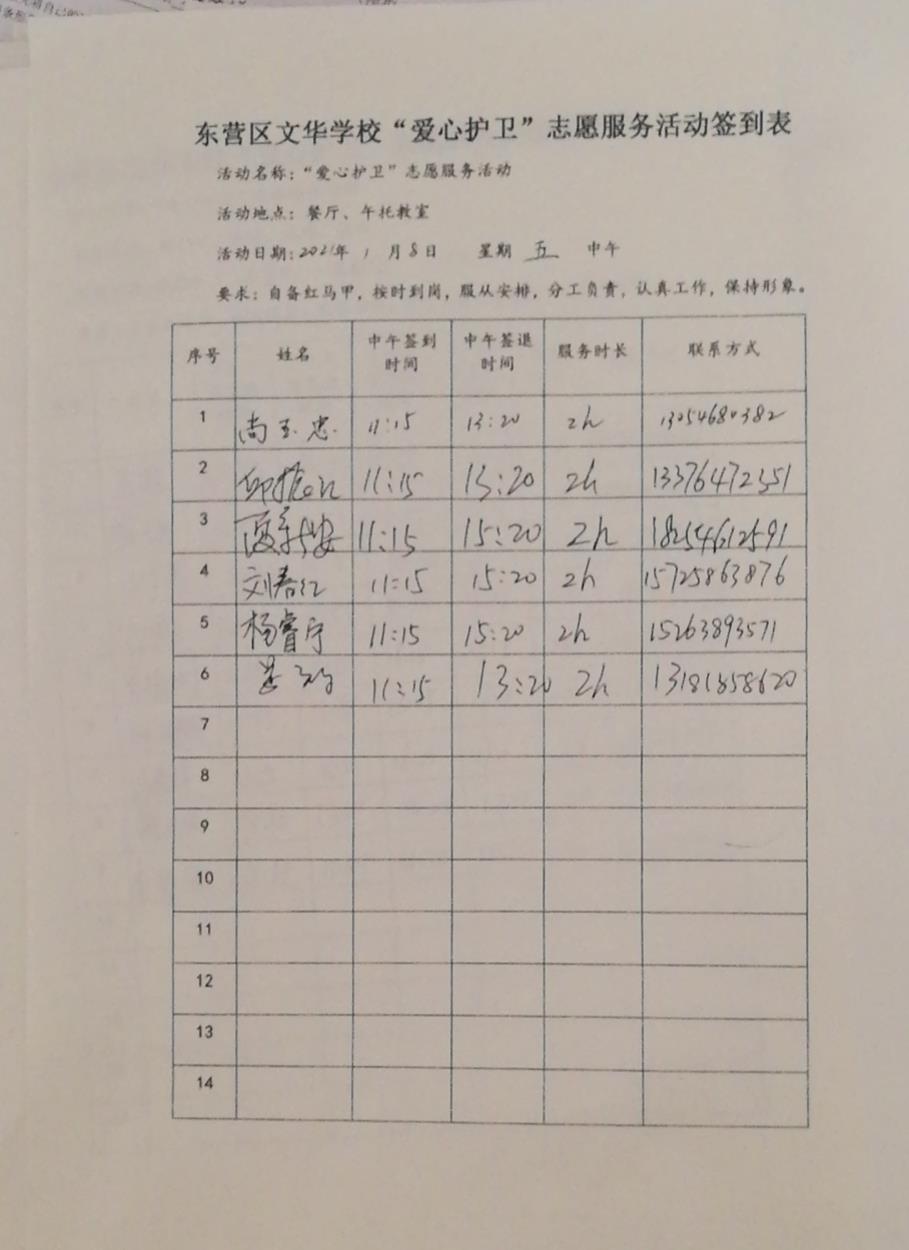 东营区文华学校“爱心护卫”志愿服务活动签到表
活动名称：“爱心护卫”志愿服务活动
活动地点：餐厅、午托教室
活动日期：2021年 1 月 8 日 星期 五 中午
要求：自备红马甲，按时到岗，服从安排，分工负责，认真工作，保持形象。
序号 姓名 中午签到时间 中午签退时间 服务时长 联系方式
1 尚玉忠 11:15 13:20 2h 13054680382
2 11:15 13:20 2h 13376472351
3 11:15 15:20 2h 18254612591
4 刘春红 11:15 15:20 2h 15725863876
5 杨睿宁 11:15 15:20 2h 15263893571
6 11:15 13:20 2h 13181858620
7
8
9
10
11
12
13
14